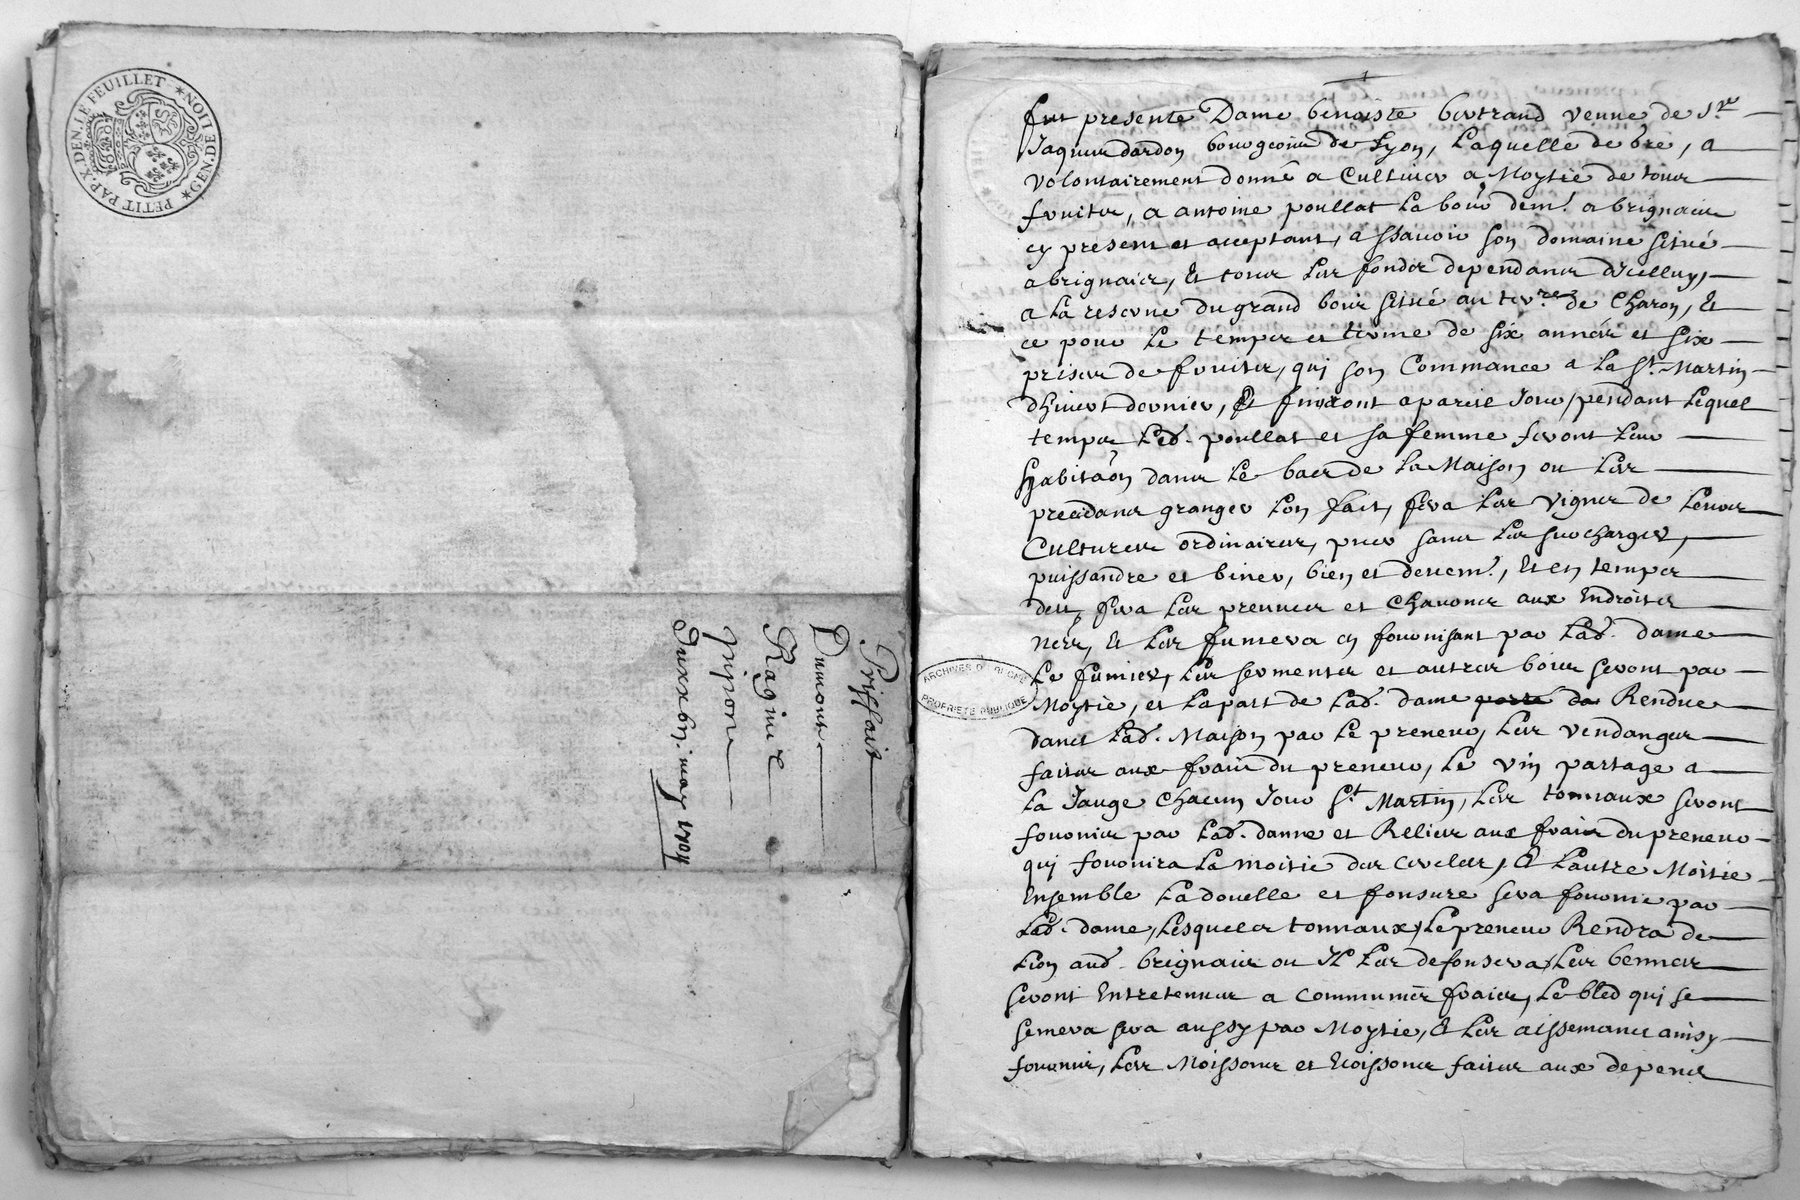 PETIT PAP. X. DEN. LE FEUILLET * GEN. DE LION *
Prisfait
Dumont
Ragiure
Gripone
Du xx bri. may 1704
ARCHIVES DU RHÔNE
PROPRIÉTÉ PUBLIQUE
fut presente Dame benoiste bertrand veuue de Sr.
Jaques dardon bourgeois de Lyon, Laquelle de gré, a
volontairement donné a Cultiuer a Moytié de tous
fruits, a antoine poullat Labour demt. a brignais
cy present et acceptant, assauoir son domaine scitué
a brignais, Et tous Les fonds dependans d'icelluy,
a La reserue du grand bois scitué au terre. de Charon, Et
ce pour Le temps et terme de six années et six
prises de fruits, qui son Commancé a La St. Martin
d'hiuert dernier, Et finiront a pareil Jour, pendant Lequel
temps Led. poullat et sa femme feront Leur
habitaon dans Le bas de La Maison ou Les
precedans granger Lon fait, fera Les vignes de Leurs
Cultures ordinaires, puer sans Les surcharger,
puissandre et biner, bien et deuemt., Et en temps
deu, fera Les preuues et Chauons aux Endroits
nécés, Et Les fumera en fournisant par Lad. dame
Le fumier, Les serments et autres bois seront par
Moytié, et La part de Lad. dame Rendue
dans Lad. Maison par Le preneur, Les vendanges
faites aux frais du preneur, Le vin partagé a
La Jauge Chacun Jour St. Martin, Les tonnaux seront
fournis par Lad. danne et Relier aux frais du preneur
qui fournira La moitié des cercles, Et Lautre Moitié
Ensemble La douelle et fonsure sera fournie par
Lad. dame, Lesquels tonnaux, Le preneur Rendra de
Lion aud. brignais ou Il Les defonsera, Les bennes
seront Entretenues a communes frais, Le bled qui se
semera sera aussy par Moytié, Et Les aissemans ainsy
fournir, Les Moissons et Ecoissons faites aux depens